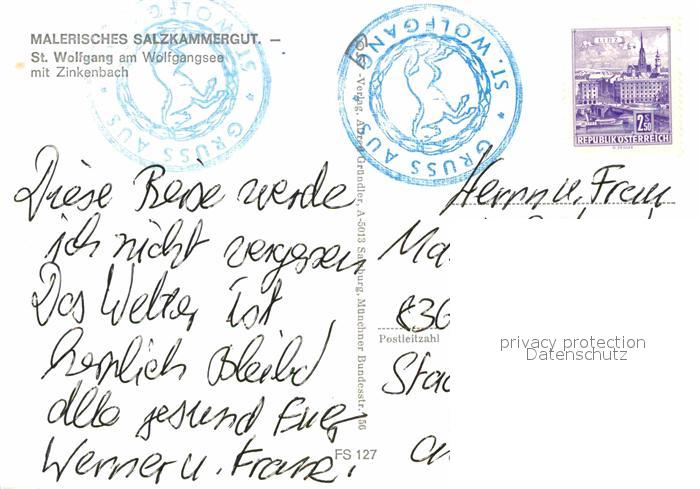 MALERISCHES SALZKAMMERGUT. —
St. Wolfgang am Wolfgangsee
mit Zinkenbach
GRUSS AUS * ST. WOLFGANG *
GRUSS AUS * ST. WOLFGANG *
LINZ
2 S 50
REPUBLIK ÖSTERREICH
Diese Reise werde
ich nicht vergessen
Das Wetter ist
herrlich Bleibd
alle gesund Euer
Werner u.
-Verlag, Gründler, A-5013 Salzburg, Münchner Bundesstr. 156
FS 127
Herrn u. Frau
Ma
Postleitzahl
836
Stad
privacy protection
Datenschutz